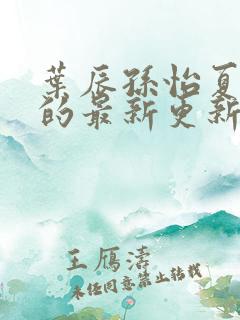 葉辰孫怡夏
的最新更新
王鴈濤
未经同意禁止转载